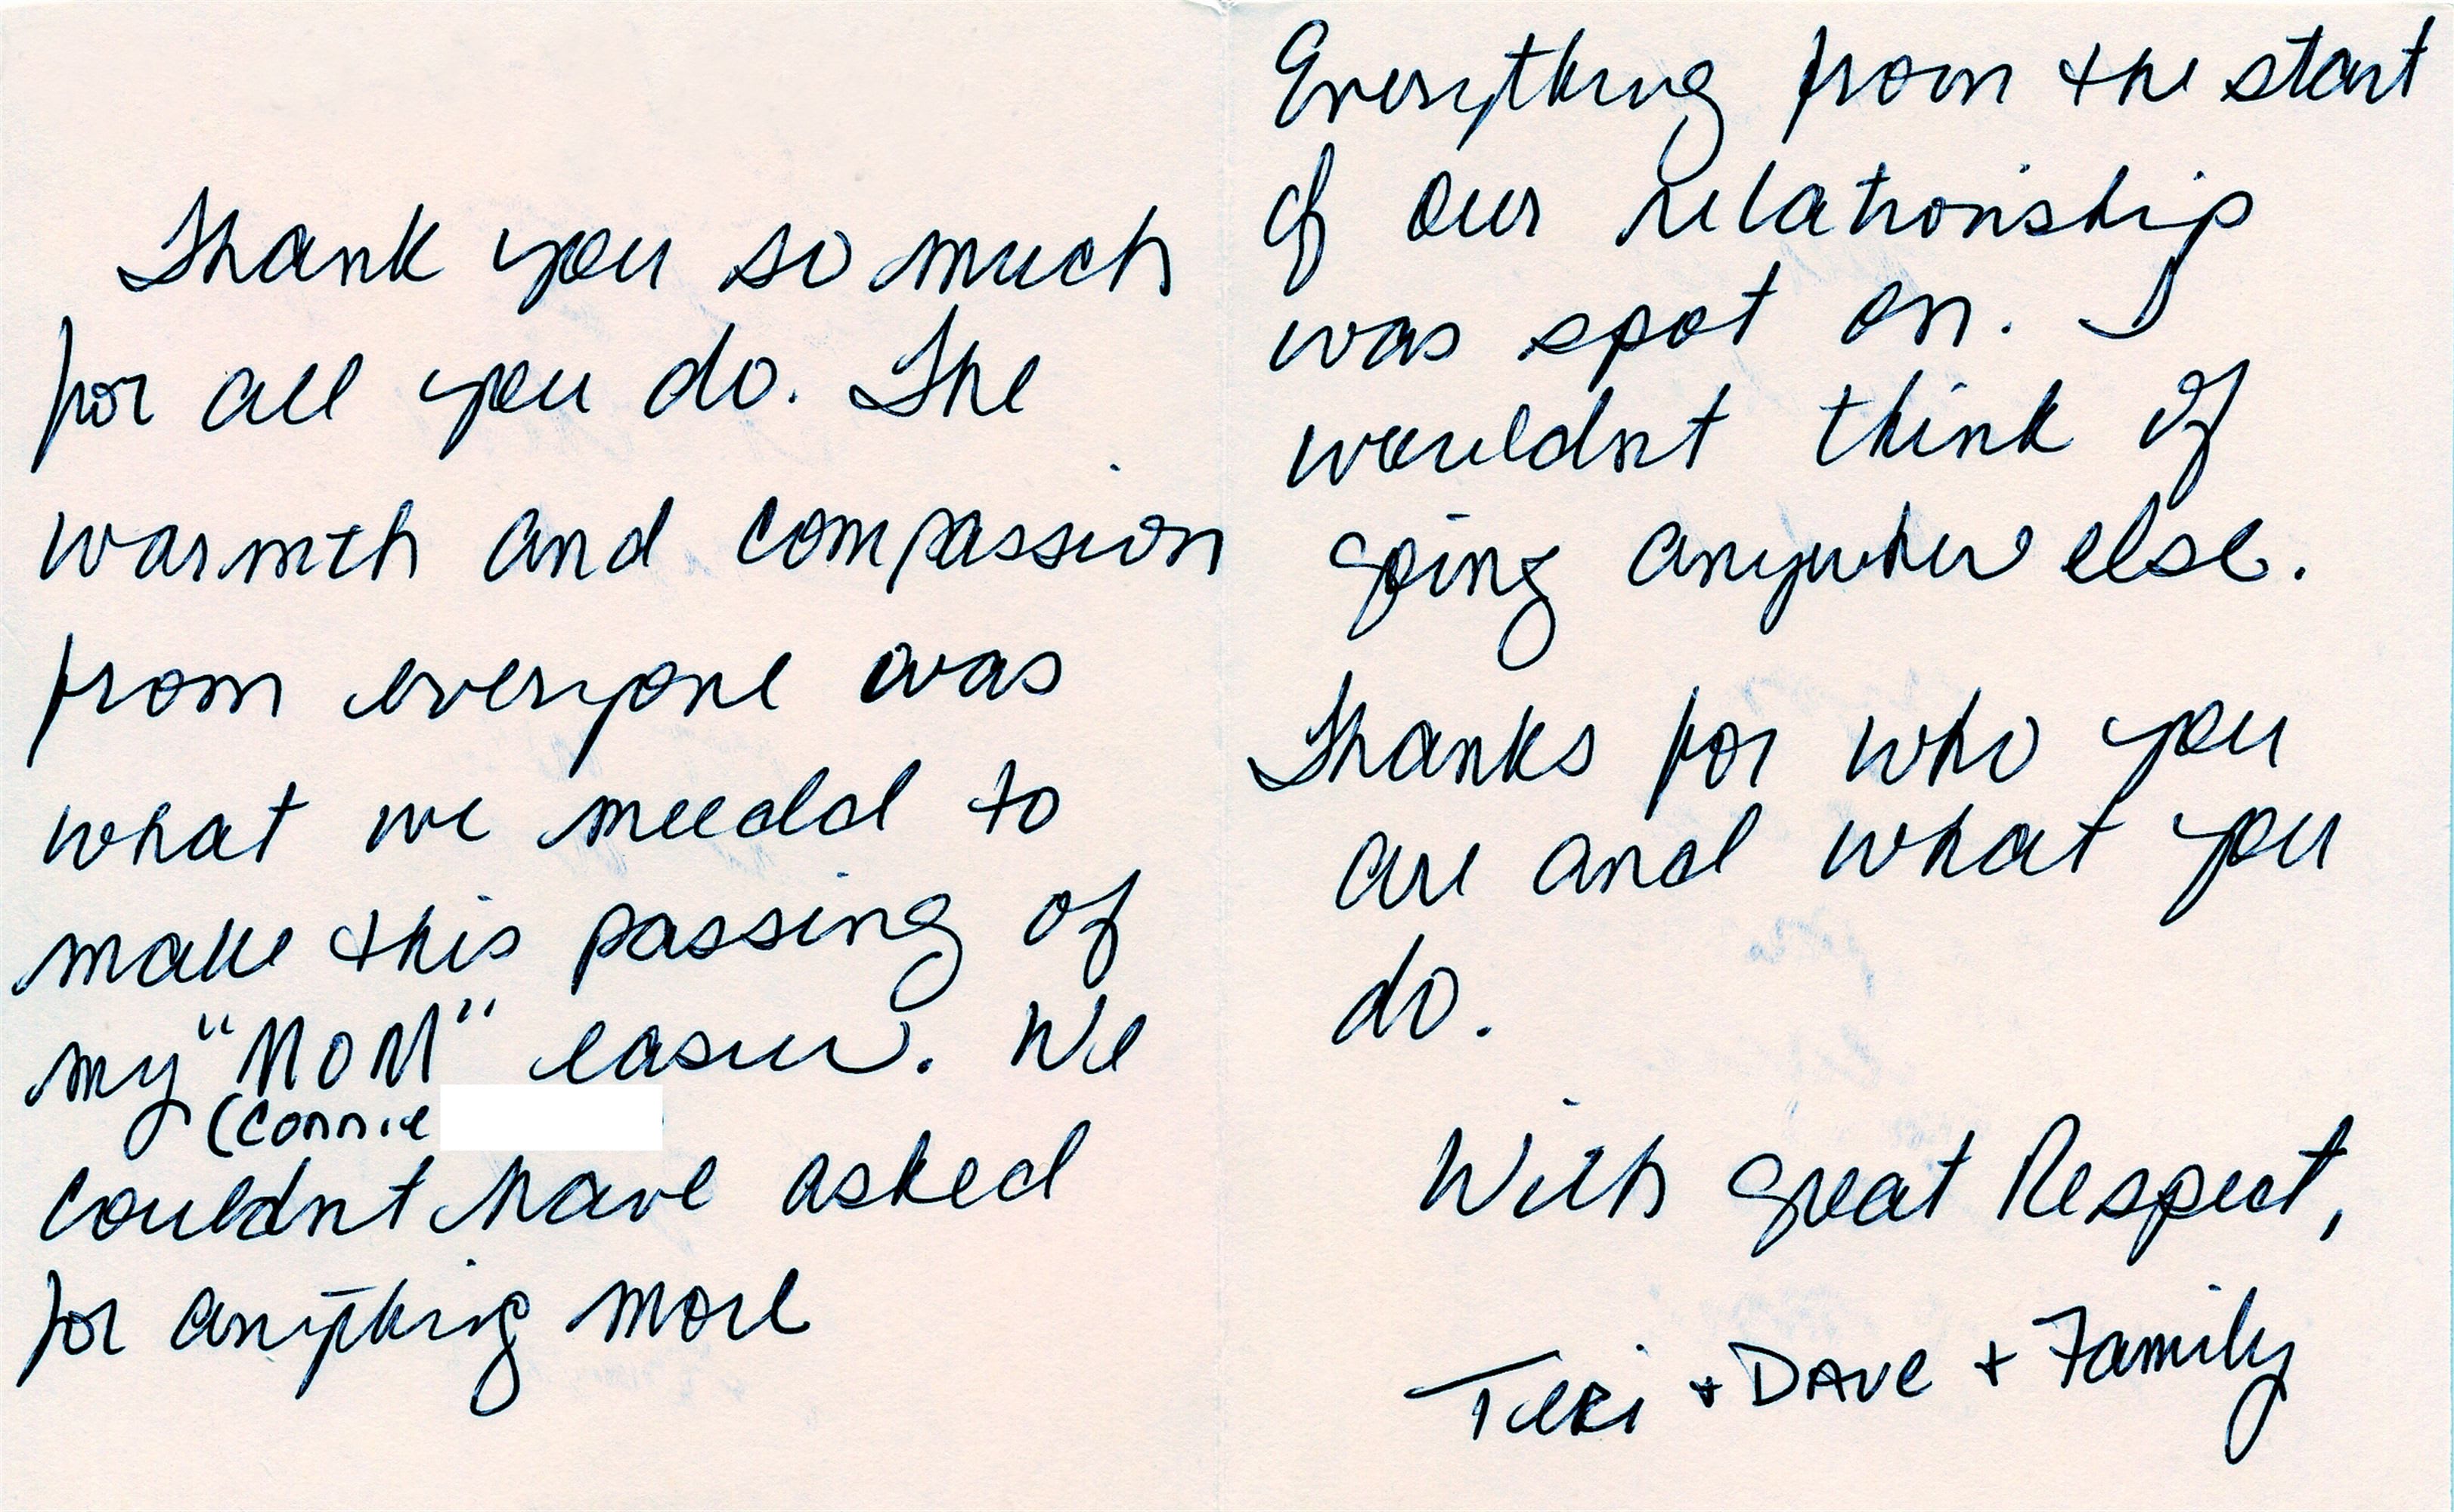 Thank you so much
for all you do. The
warmth and compassion
from everyone was
what we needed to
make this passing of
my "MOM" easier. We
(Connie
couldnt have asked
for anything more
Everything from the start
of our relationship
was spot on. I
wouldnt think of
going anywhere else.
Thanks for who you
are and what you
do.
With great Respect,
Terri + Dave + Family